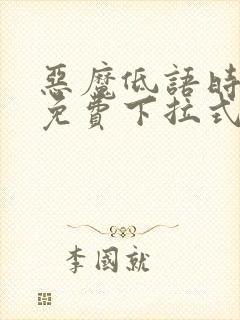 惡魔低語時
免費下拉式
李國就